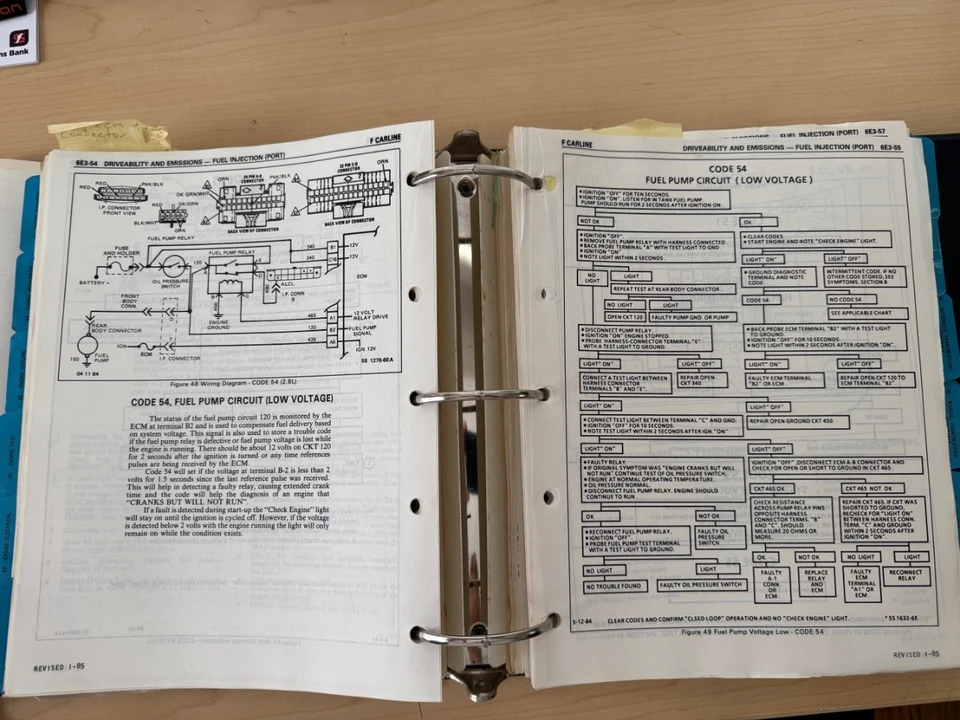 ns Bank
Connector
F CARLINE
6E3-54 DRIVEABILITY AND EMISSIONS — FUEL INJECTION (PORT)
RED
PNK/BLK
RED
I.P. CONNECTOR
FRONT VIEW
DK/GRN
BLK/WHT
ORN
ORN
DK GRN/WHT
24 PIN A-B
CONNECTOR
PNK/BLK
BACK VIEW OF CONNECTOR
32 PIN C-D
CONNECTOR
ORN
BACK VIEW OF CONNECTOR
FUEL PUMP RELAY
FUSE
AND HOLDER
BATTERY +
OIL PRESSURE
SWITCH
120
FUEL PUMP RELAY
340
340
B1
C16
12V
12V
ECM
ALCL
I.P. CONN
FRONT
BODY
CONN.
ENGINE
GROUND
465
120
439
A1
B2
A6
12 VOLT
RELAY DRIVE
FUEL PUMP
SIGNAL
IGN 12V
REAR
BODY CONNECTOR
IGN
ECM
I.P. CONNECTOR
150
FUEL
PUMP
04 11 84
S8 1276-6EA
Figure 48 Wiring Diagram - CODE 54 (2.8L)
CODE 54, FUEL PUMP CIRCUIT (LOW VOLTAGE)
The status of the fuel pump circuit 120 is monitored by the
ECM at terminal B2 and is used to compensate fuel delivery based
on system voltage. This signal is also used to store a trouble code
if the fuel pump relay is defective or fuel pump voltage is lost while
the engine is running. There should be about 12 volts on CKT 120
for 2 seconds after the ignition is turned or any time references
pulses are being received by the ECM.
Code 54 will set if the voltage at terminal B-2 is less than 2
volts for 1.5 seconds since the last reference pulse was received.
This will help in detecting a faulty relay, causing extended crank
time and the code will help the diagnosis of an engine that
"CRANKS BUT WILL NOT RUN".
If a fault is detected during start-up the "Check Engine" light
will stay on until the ignition is cycled off. However, if the voltage
is detected below 2 volts with the engine running the light will only
remain on while the condition exists.
REVISED 1-85
FUEL INJECTION (PORT) 6E3-57
F CARLINE
DRIVEABILITY AND EMISSIONS — FUEL INJECTION (PORT) 6E3-55
CODE 54
FUEL PUMP CIRCUIT (LOW VOLTAGE)
• IGNITION "OFF" FOR TEN SECONDS.
• IGNITION "ON". LISTEN FOR IN TANK FUEL PUMP.
PUMP SHOULD RUN FOR 2 SECONDS AFTER IGNITION ON
NOT OK
OK
• IGNITION "OFF".
• REMOVE FUEL PUMP RELAY WITH HARNESS CONNECTED
• BACK PROBE TERMINAL "A" WITH TEST LIGHT TO GND
• IGNITION "ON"
• NOTE LIGHT WITHIN 2 SECONDS
• CLEAR CODES
• START ENGINE AND NOTE "CHECK ENGINE" LIGHT.
NO
LIGHT
LIGHT
LIGHT "ON"
LIGHT "OFF"
REPEAT TEST AT REAR BODY CONNECTOR
• GROUND DIAGNOSTIC
TERMINAL AND NOTE
CODE
INTERMITTENT CODE. IF NO
OTHER CODE STORED, SEE
SYMPTOMS. SECTION B
NO LIGHT
LIGHT
CODE 54
NO CODE 54
OPEN CKT 120
FAULTY PUMP GND. OR PUMP
SEE APPLICABLE CHART
• DISCONNECT PUMP RELAY.
• IGNITION "ON" ENGINE STOPPED.
• PROBE HARNESS CONNECTOR TERMINAL "E"
WITH A TEST LIGHT TO GROUND.
• BACK PROBE ECM TERMINAL "B2" WITH A TEST LIGHT
TO GROUND.
• IGNITION "OFF" FOR 10 SECONDS.
• NOTE LIGHT WITHIN 2 SECONDS AFTER IGNITION "ON".
LIGHT "ON"
LIGHT "OFF"
LIGHT "ON"
LIGHT "OFF"
CONNECT A TEST LIGHT BETWEEN
HARNESS CONNECTOR
TERMINALS "B" AND "E".
REPAIR OPEN
CKT 340
FAULTY ECM TERMINAL
"B2" OR ECM
REPAIR OPEN CKT 120 TO
ECM TERMINAL "B2"
LIGHT "ON"
LIGHT "OFF"
• CONNECT TEST LIGHT BETWEEN TERMINAL "C" AND GND
• IGNITION "OFF" FOR 10 SECONDS
• NOTE TEST LIGHT WITHIN 2 SECONDS AFTER IGN. "ON"
REPAIR OPEN GROUND CKT 450
LIGHT "ON"
LIGHT "OFF"
• FAULTY RELAY.
• IF ORIGINAL SYMPTOM WAS "ENGINE CRANKS BUT WILL
NOT RUN" CONTINUE TEST OF OIL PRESSURE SWITCH.
• ENGINE AT NORMAL OPERATING TEMPERATURE.
• OIL PRESSURE NORMAL.
• DISCONNECT FUEL PUMP RELAY. ENGINE SHOULD
CONTINUE TO RUN
IGNITION "OFF". DISCONNECT ECM A-B CONNECTOR AND
CHECK FOR OPEN OR SHORT TO GROUND IN CKT 465.
CKT 465 OK
CKT 465 NOT OK
OK
NOT OK
CHECK RESISTANCE
ACROSS PUMP RELAY PINS
OPPOSITE HARNESS
CONNECTOR TERMS. "B"
AND "C". SHOULD
MEASURE 20 OHMS OR
MORE.
REPAIR CKT 465. IF CKT WAS
SHORTED TO GROUND,
RECHECK FOR "LIGHT ON"
BETWEEN HARNESS CONN.
TERM. "C" AND GROUND
WITHIN 2 SECONDS AFTER
IGNITION "ON".
• RECONNECT FUEL PUMP RELAY.
• IGNITION "OFF".
• PROBE FUEL PUMP TEST TERMINAL
WITH A TEST LIGHT TO GROUND.
FAULTY OIL
PRESSURE
SWITCH.
OK
NOT OK
NO LIGHT
LIGHT
NO LIGHT
LIGHT
FAULTY
A-1
CONN.
OR
ECM.
REPLACE
RELAY
AND
ECM
FAULTY
ECM
TERMINAL
"A1" OR
ECM.
RECONNECT
RELAY
NO TROUBLE FOUND.
FAULTY OIL PRESSURE SWITCH
5-12-84
CLEAR CODES AND CONFIRM "CLSED LOOP" OPERATION AND NO "CHECK ENGINE" LIGHT.
* 5S 1632-6E
Figure 49 Fuel Pump Voltage Low - CODE 54
REVISED 1-85